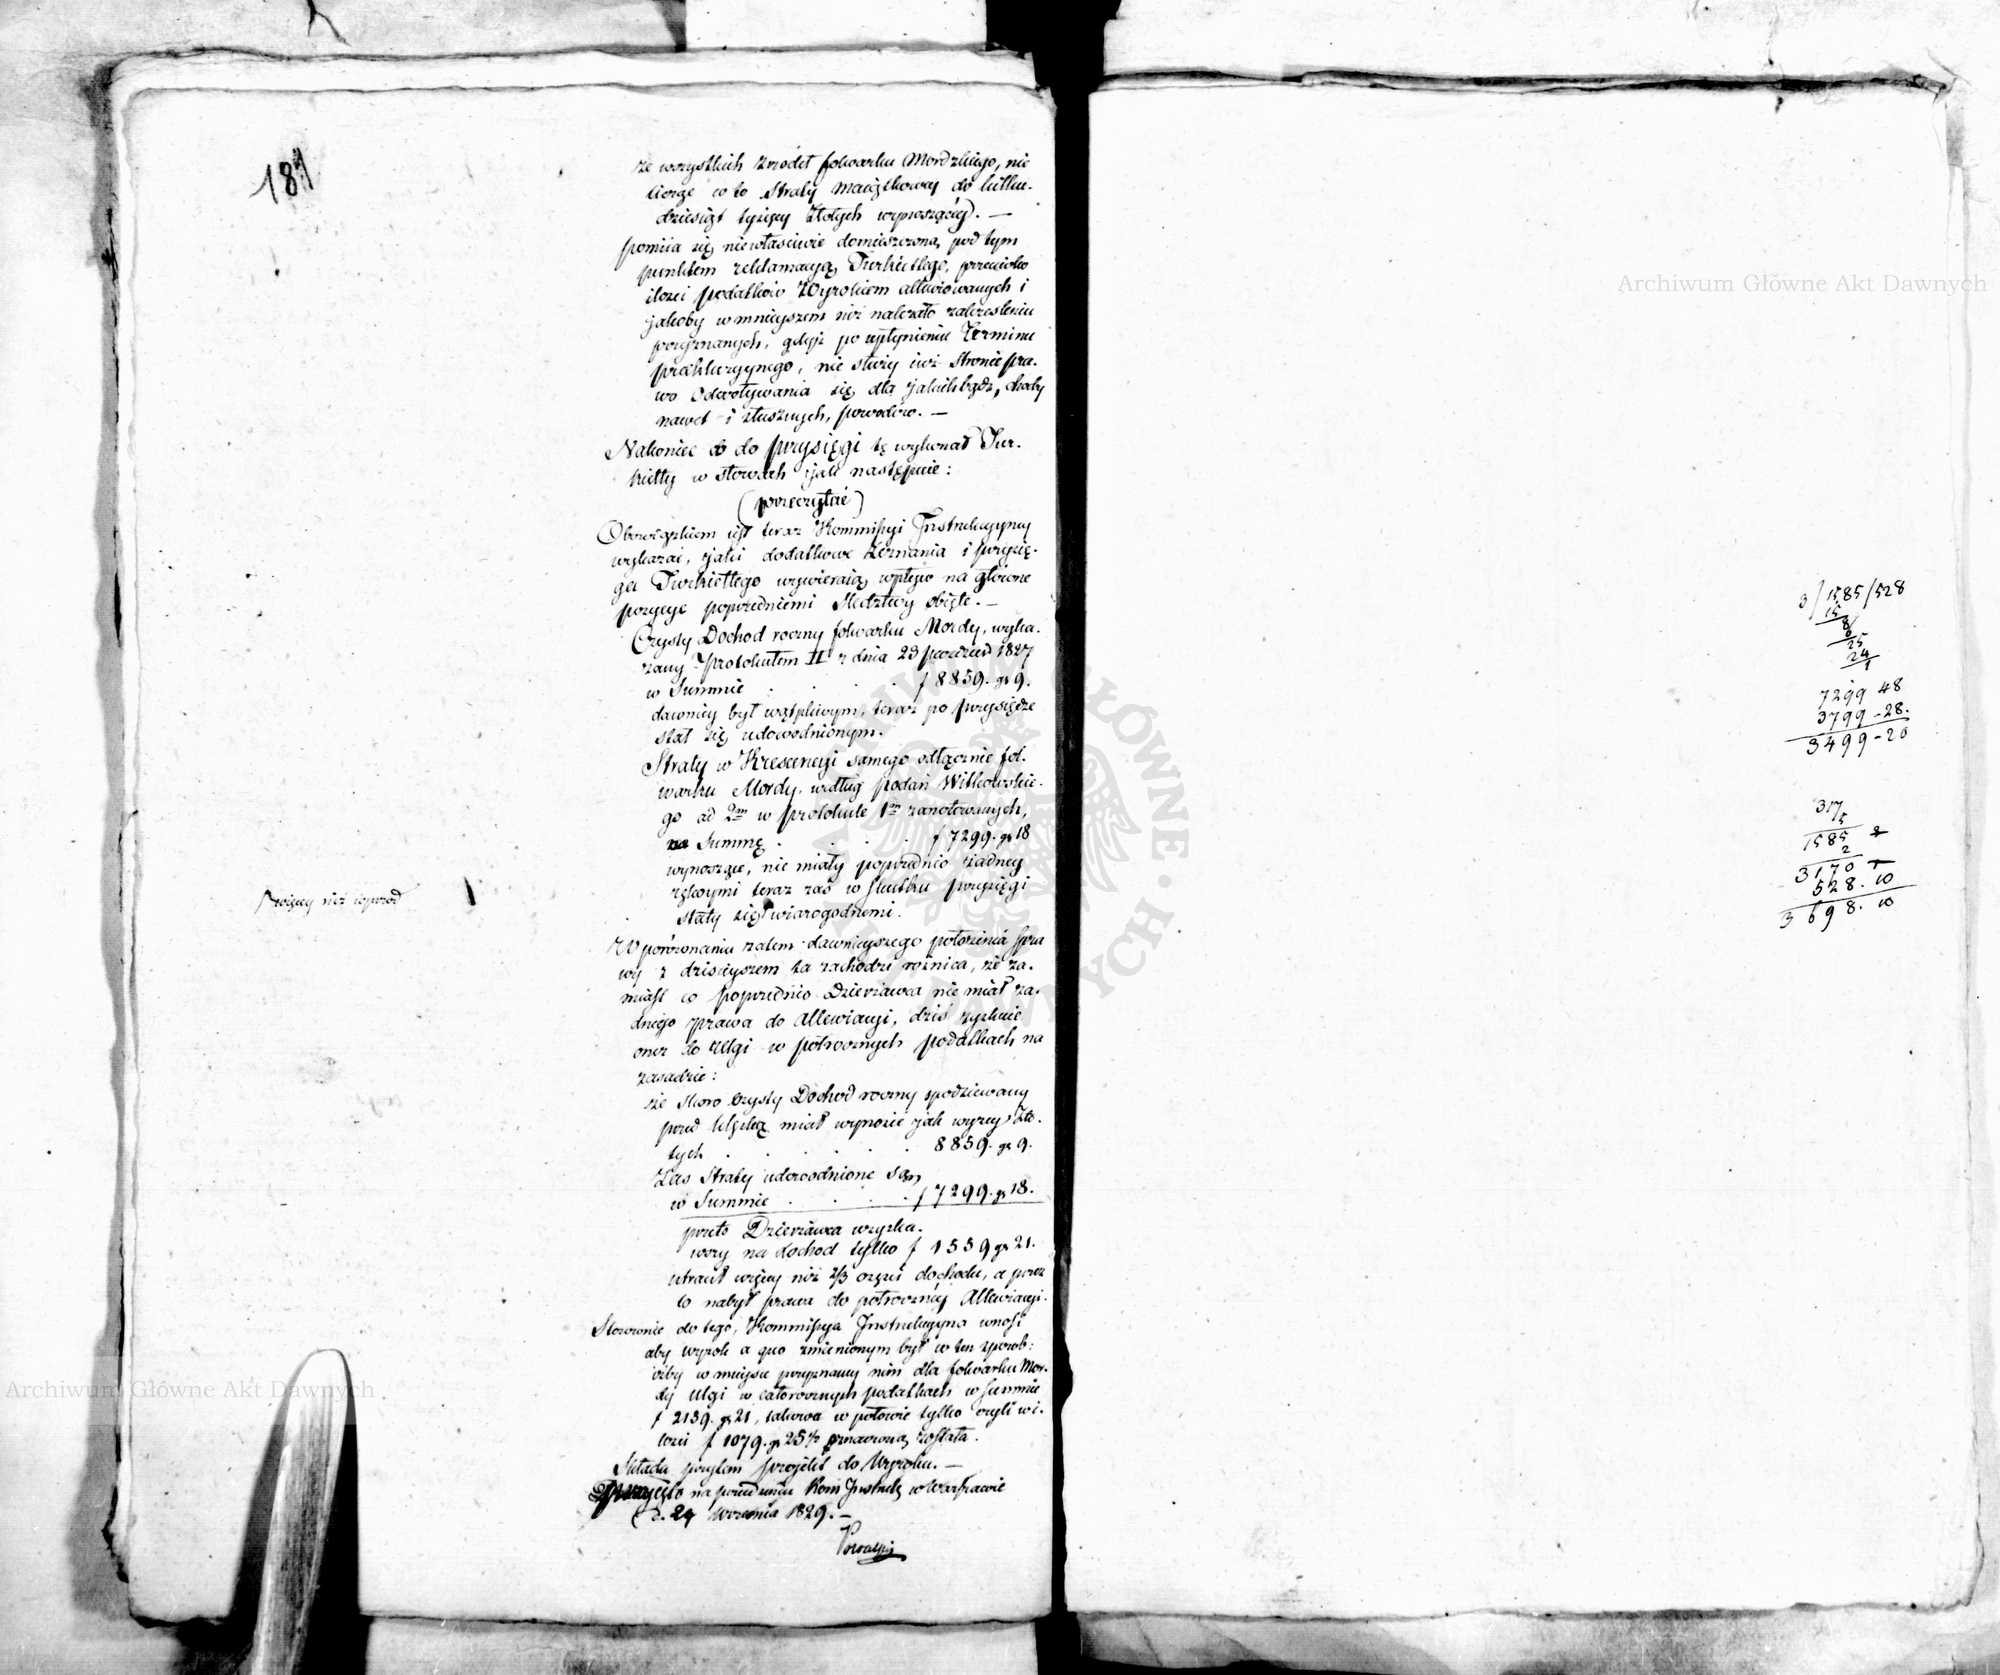 181
ze wszystkich zrodeł folwarku Mordzkiego, nie
licząc w to Straty maiątkowey do kilku-
dziesiąt tysięcy Złotych wynoszącéy). —
pomiia się niewłaściwie domieszczoną pod tym
punktem reklamacyą Turkiettego, przeciwko
ilości podatków Wyrokiem allewiowanych i
jakoby w mnieyszem niż należało zakresleniu
przyznanych, gdyż po upłynieniu Terminu
prekluzyynego, nie służy iuż Stronie pra-
wo Odwoływania się dla jakichbądź, choćby
nawet i słusznych, powodów. —
Nakoniec co do przysięgi tę wykonał Tur-
kietty w słowach jak następuie:
(przeczytać)
Obowiązkiem jest teraz Kommissyi Instrukcyyney
wykazać, jaki dodatkowe zeznania i przysię-
ga Turkiettego wywieraią wpływ na główne
pozycye poprzedniemi Sledztwy obięte. —
Czysty Dochod roczny folwarku Mordy, wyka-
zany Protokułem II z dnia 23 1827
w Summie . . . . f 8859. gr 9.
dawniey był wątpliwym, teraz po przysiędze
stał się udowodnionym.
Straty w Krescencyi samego odłącznie fol-
warku Mordy, według podań Witkowskie-
go ad 2m w protokule 1m zanotowanych,
na Summę . . . . f 7299. gr 18
wynoszące, nie miały poprzednio żadney
rękoymi teraz zaś w skutku przysięgi
stały się wiarogodnemi.
więcey niż wprzód
W porównaniu zatem dawnieyszego położenia spra
wy z dzisieyszem ta zachodzi różnica, że za-
miast co poprzednio Dzierżawca nie miał ża-
dnego prawa do Allewiacyi, dziś zyskuie
one do Ulgi w półrocznych podatkach na
zasadzie:
że skoro Czysty Dochod roczny spodziewany
przed klęską miał wynosić jak wyżey Zło-
tych . . . . . . 8859. gr 9.
Zas Straty udowodnione są
w Summie . . . . f 7299. gr 18.
przeto Dzierżawca uzyska-
wszy na dochod tylko f 1559 gr 21.
utracił więcey niż 2/3 części dochodu, a przez
to nabył prawa do półroczney Allewiacyi.
Stosownie do tego, Kommissya Instrukcyyna wnosi
aby wyrok a quo zmienionym był w ten sposob:
iżby w mieysce przyznaney nim dla folwarku Mor-
dy Ulgi w całorocznych podatkach w summie
f 2159. gr 21, takowa w połowie tylko czyli w i-
lości f 1079. gr 25½ przyznaną została.
Składa przytem projekt do Wyroku. —
Przyjęto na posiedzeniu Kom Instruk w Warszawie
d. 24 Września 1829. —
3/1585/528
15
8
6
25
24
1
7299 48
3799 - 28.
3499 - 20
317
5
1585
2
3170
528. 10
3698. 10
Archiwum Główne Akt Dawnych
Archiwum Główne Akt Dawnych